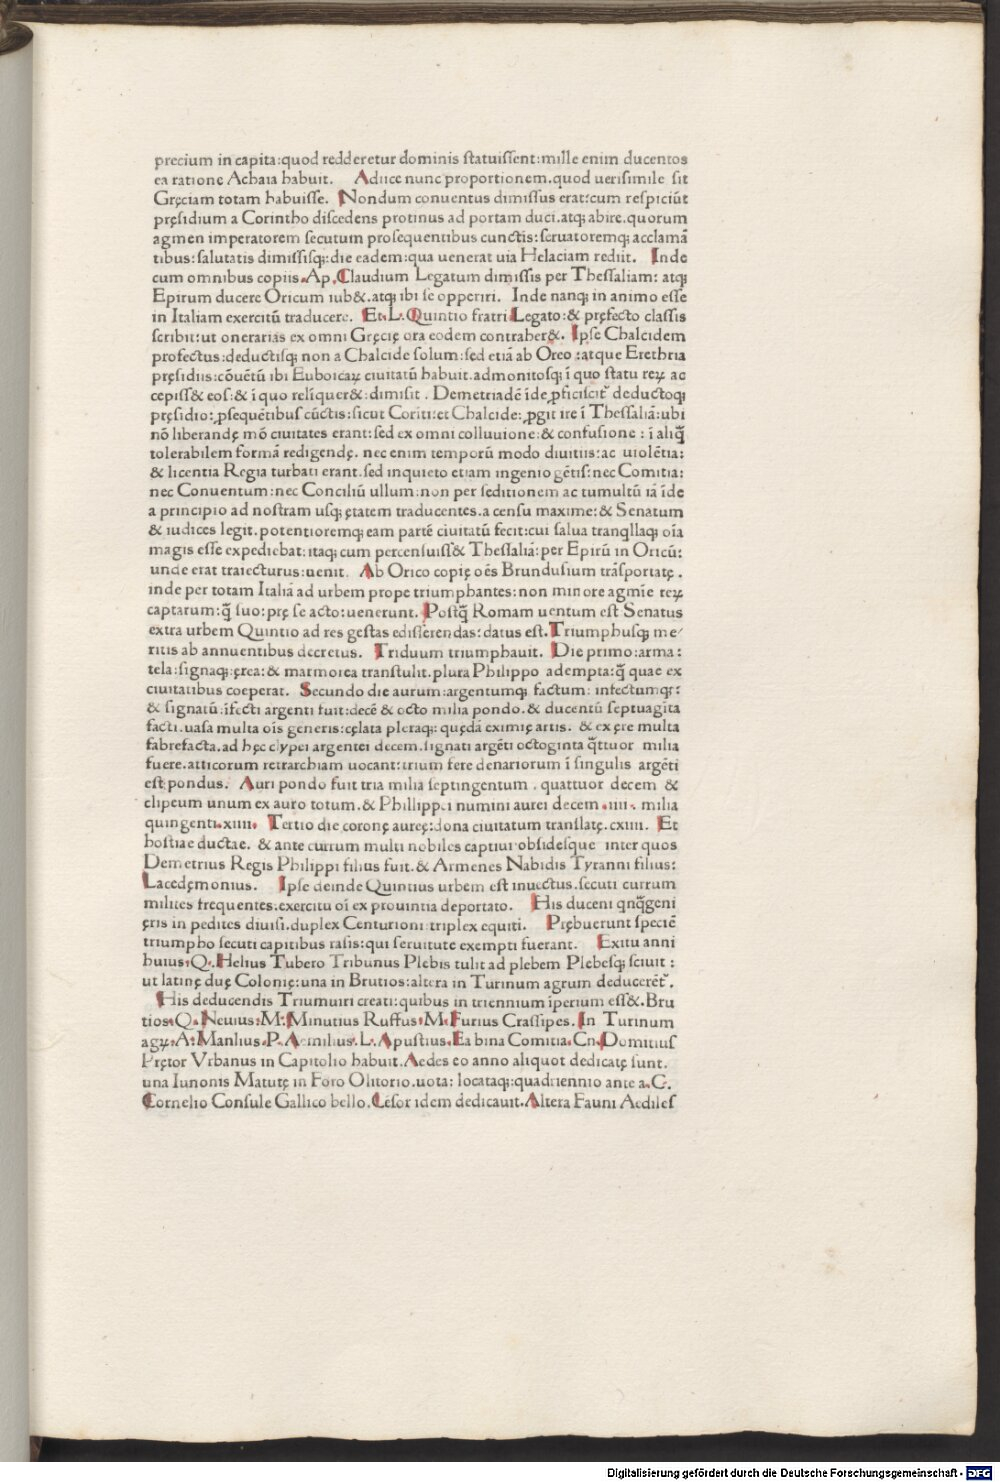 precium in capita:quod redderetur dominis statuissent:mille enim ducentos
ea ratione Achaia habuit. Adiice nunc proportionem.quod uerisimile sit
Gręciam totam habuisse. Nondum conuentus dimissus erat:cum respiciūt
pręsidium a Corintho discedens protinus ad portam duci.atq; abire.quorum
agmen imperatorem secutum prosequentibus cunctis:seruatoremq; acclamā
tibus:salutatis dimissisq;:die eadem:qua uenerat uia Helaciam rediit. Inde
cum omnibus copiis.Ap.Claudium Legatum dimissis per Thessaliam: atq;
Epirum ducere Oricum iub&.atq; ibi se opperiri. Inde nanq; in animo esse
in Italiam exercitū traducere. Et.L.Quintio fratri Legato:& pręfecto classis
scribit:ut onerarias ex omni Gręcię ora eodem contraher&. Ipse Chalcidem
profectus:deductisq; non a Chalcide solum:sed etiā ab Oreo:atque Erethria
pręsidiis:cōuētū ibi Euboicaꝝ ciuitatū habuit.admonitosq; ī quo statu reꝝ ac
cepiss& eos:& ī quo relīquer&:dimisit. Demetriadē īde ꝓficiscit᷑ deductoq;
pręsidio:ꝓsequētibus cūctis:sicut Coriti:et Chalcide:ꝓgit ire ī Thessaliā:ubi
nō liberandę mō ciuitates erant:sed ex omni colluuione:& confusione: ī aliq̄
tolerabilem formā redigendę. nec enim temporū modo diuitiis:ac uiolētia:
& licentia Regia turbati erant.sed inquieto etiam ingenio gētis:nec Comitia:
nec Conuentum:nec Conciliū ullum:non per seditionem ac tumultū iā īde
a principio ad nostram usq; ętatem traducentes.a censu maxime:& Senatum
& iudices legit.potentioremq; eam partē ciuitatū fecit:cui salua tranqllaq; oīa
magis esse expediebat:itaq; cum percensuiss& Thessaliā:per Epirū in Oricū:
unde erat traiecturus:uenit. Ab Orico copię oēs Brundusium trāsportatę.
inde per totam Italiā ad urbem prope triumphantes:non minore agmīe reꝝ
captarum:q̄ suo:prę se acto:uenerunt. Postq̄ Romam uentum est Senatus
extra urbem Quintio ad res gestas edisserendas:datus est.Triumphusq; me/
ritis ab annuentibus decretus. Triduum triumphauit. Die primo:arma:
tela:signaq; ęrea:& marmorea transtulit.plura Philippo adempta:q̄ quae ex
ciuitatibus coeperat. Secundo die aurum:argentumq; factum: infectumq;:
& signatū:īfecti argenti fuit:decē & octo milia pondo.& ducentū septuagīta
facti.uasa multa oīs generis:cęlata pleraq;: quędā eximię artis. & ex ęre multa
fabrefacta.ad hęc clypei argentei decem.signati argēti octoginta q̄ttuor milia
fuere.atticorum retrarchiam uocant:trium fere denariorum ī singulis argēti
est pondus. Auri pondo fuit tria milia septingentum. quattuor decem &
clipeum unum ex auro totum.& Phillippei numini aurei decem .iiii. milia
quingenti.xiiii. Tertio die coronę aureę:dona ciuitatum translatę.cxiiii. Et
hostiae ductae. & ante currum multi nobiles captiui obsidesque inter quos
Demetrius Regis Philippi filius fuit.& Armenes Nabidis Tyranni filius:
Lacedęmonius. Ipse deinde Quintius urbem est inuectus.secuti currum
milites frequentes.exercitu oī ex prouintia deportato. His duceni qnq̄geni
ęris in pedites diuisi.duplex Centurioni:triplex equiti. Prębuerunt speciē
triumpho secuti capitibus rasis:qui seruitute exempti fuerant. Exitu anni
huius.Q.Helius Tubero Tribunus Plebis tulit ad plebem Plebesq; sciuit:
ut latinę duę Colonię:una in Brutios:altera in Turinum agrum deducerēt᷑.
His deducendis Triumuiri creati:quibus in triennium īperium ess&.Bru
tios.Q.Neuius:M:Minutius Ruffus.M.Furius Crassipes.In Turinum
agꝝ.A.Manlius.P.Aemilius.L.Apustius.Ea bina Comitia.Cn.Domitius
Prętor Vrbanus in Capitolio habuit.Aedes eo anno aliquot dedicatę sunt.
una Iunonis Matutę in Foro Olitorio.uota: locataq;:quadriennio ante a.C.
Cornelio Consule Gallico bello.Cēsor idem dedicauit.Altera Fauni Aediles
Digitalisierung gefördert durch die Deutsche Forschungsgemeinschaft - DFG